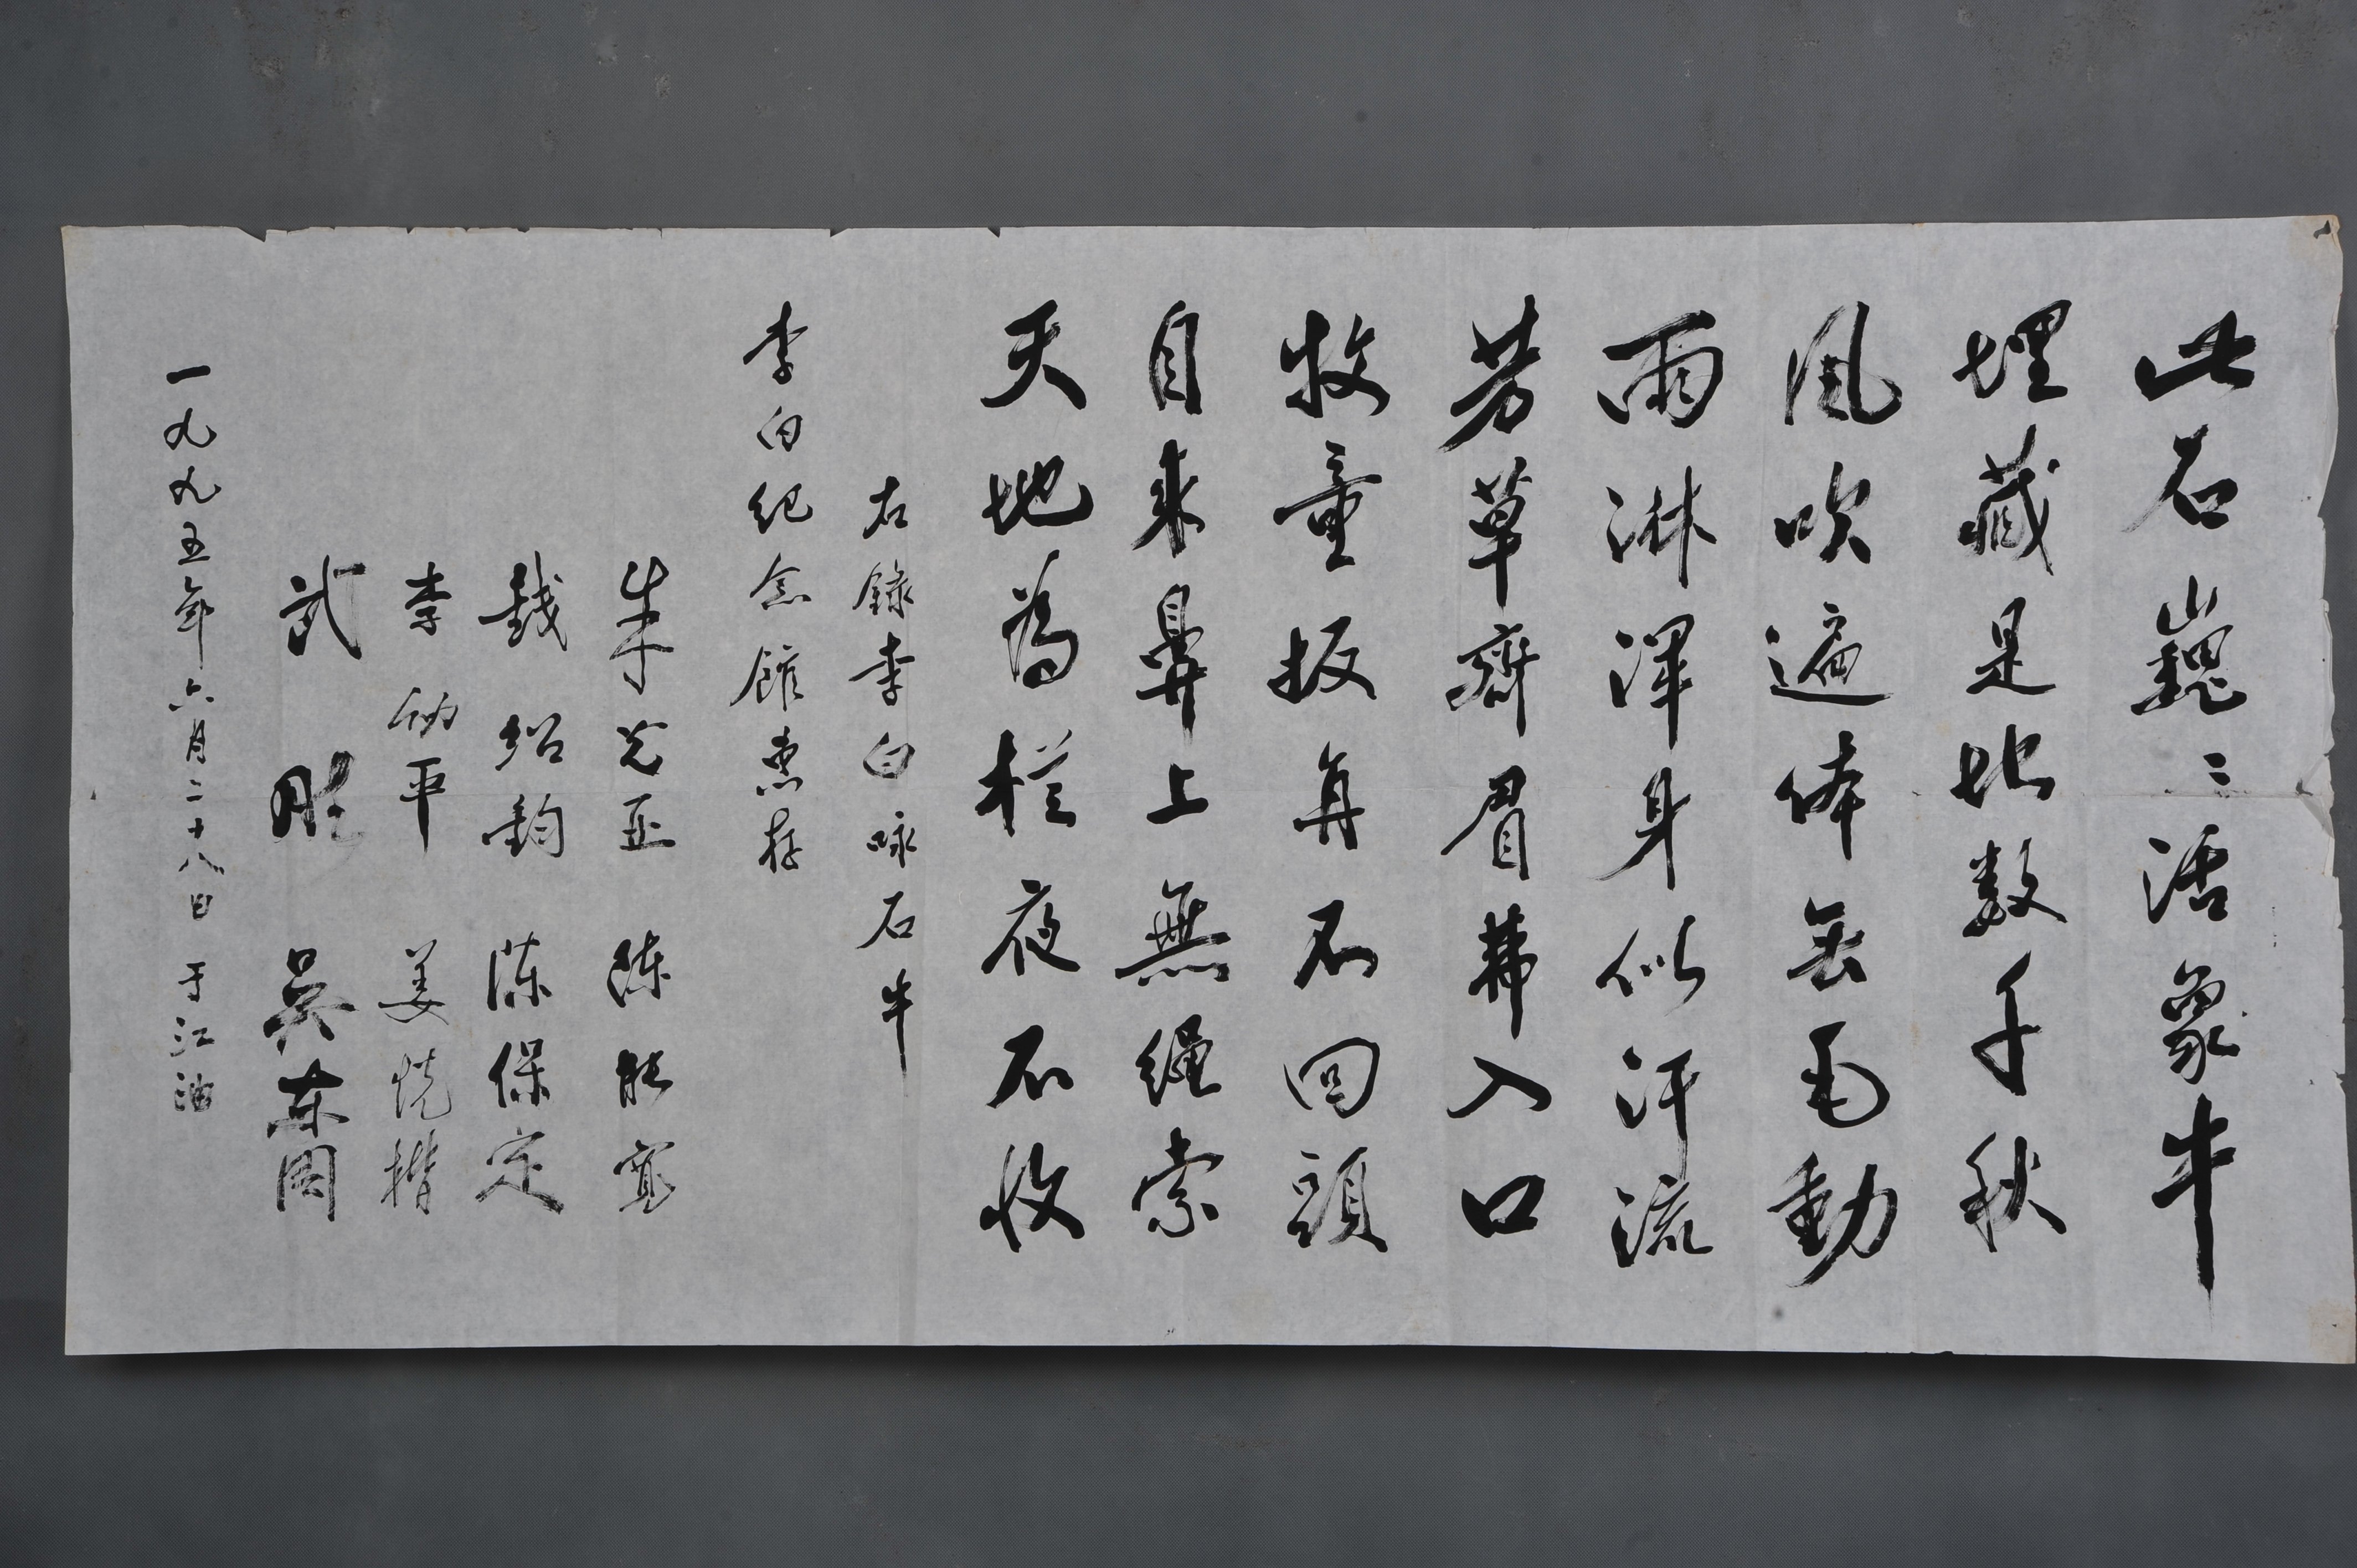 此石巍〻活象牛
埋藏是地数千秋
風吹遍体無毛動
雨淋渾身似汗流
芳草齊眉弗入口
牧童扳角不回頭
自来鼻上無繩索
天地為栏夜不收
右録李白咏石牛
李白纪念館惠存
朱光亚 陈能寬
钱绍鈞 陈保定
李 平 姜悦楷
武 胜 吴东周
一九九五年六月二十八日 于江油